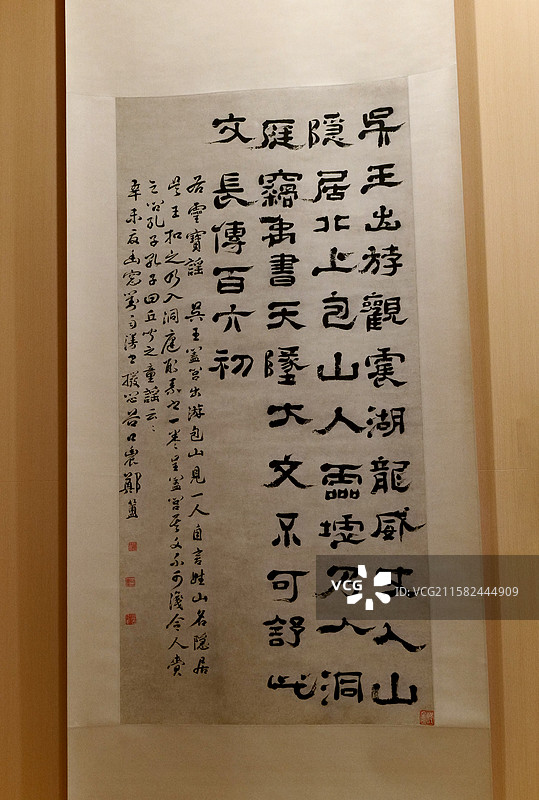 吳王出斿觀震湖龍威丈人山
隱居北上包山入靈墟乃入洞
庭竊禹書天墬大文不可舒此
文長傳百六初
右靈寶謠 吳王闔閭出游包山見一人自言姓山名隱居
吳王扣之乃入洞庭取素書一卷呈闔閭其文不可識令人賫
之問孔子孔子曰丘聞之童謠云云
辛未夏 谷口農鄭簠
VCG
ID: VCG211582444909